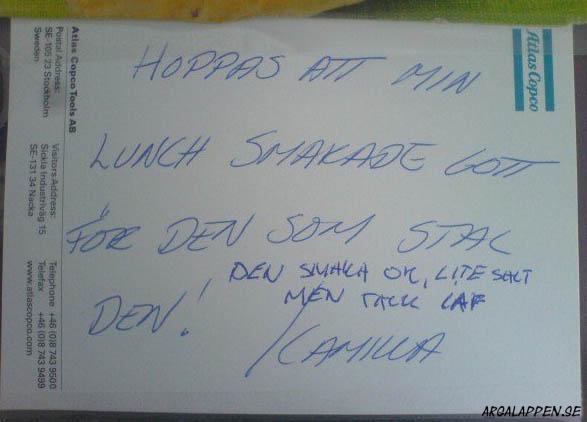 HOPPAS ATT MIN
LUNCH SMAKADE GOTT
FÖR DEN SOM STAL
DEN!
DEN SMAKA OK, LITE SALT
MEN TACK
/CAMILLA
Atlas Copco
Atlas Copco Tools AB
Postal Address:
SE-105 23 Stockholm
Sweden
Visitors Address:
Sickla Industriväg 15
SE-131 34 Nacka
Telephone +46 (0)8 743 9500
Telefax +46 (0)8 743 9499
www.atlascopco.com
ARGALAPPEN.SE